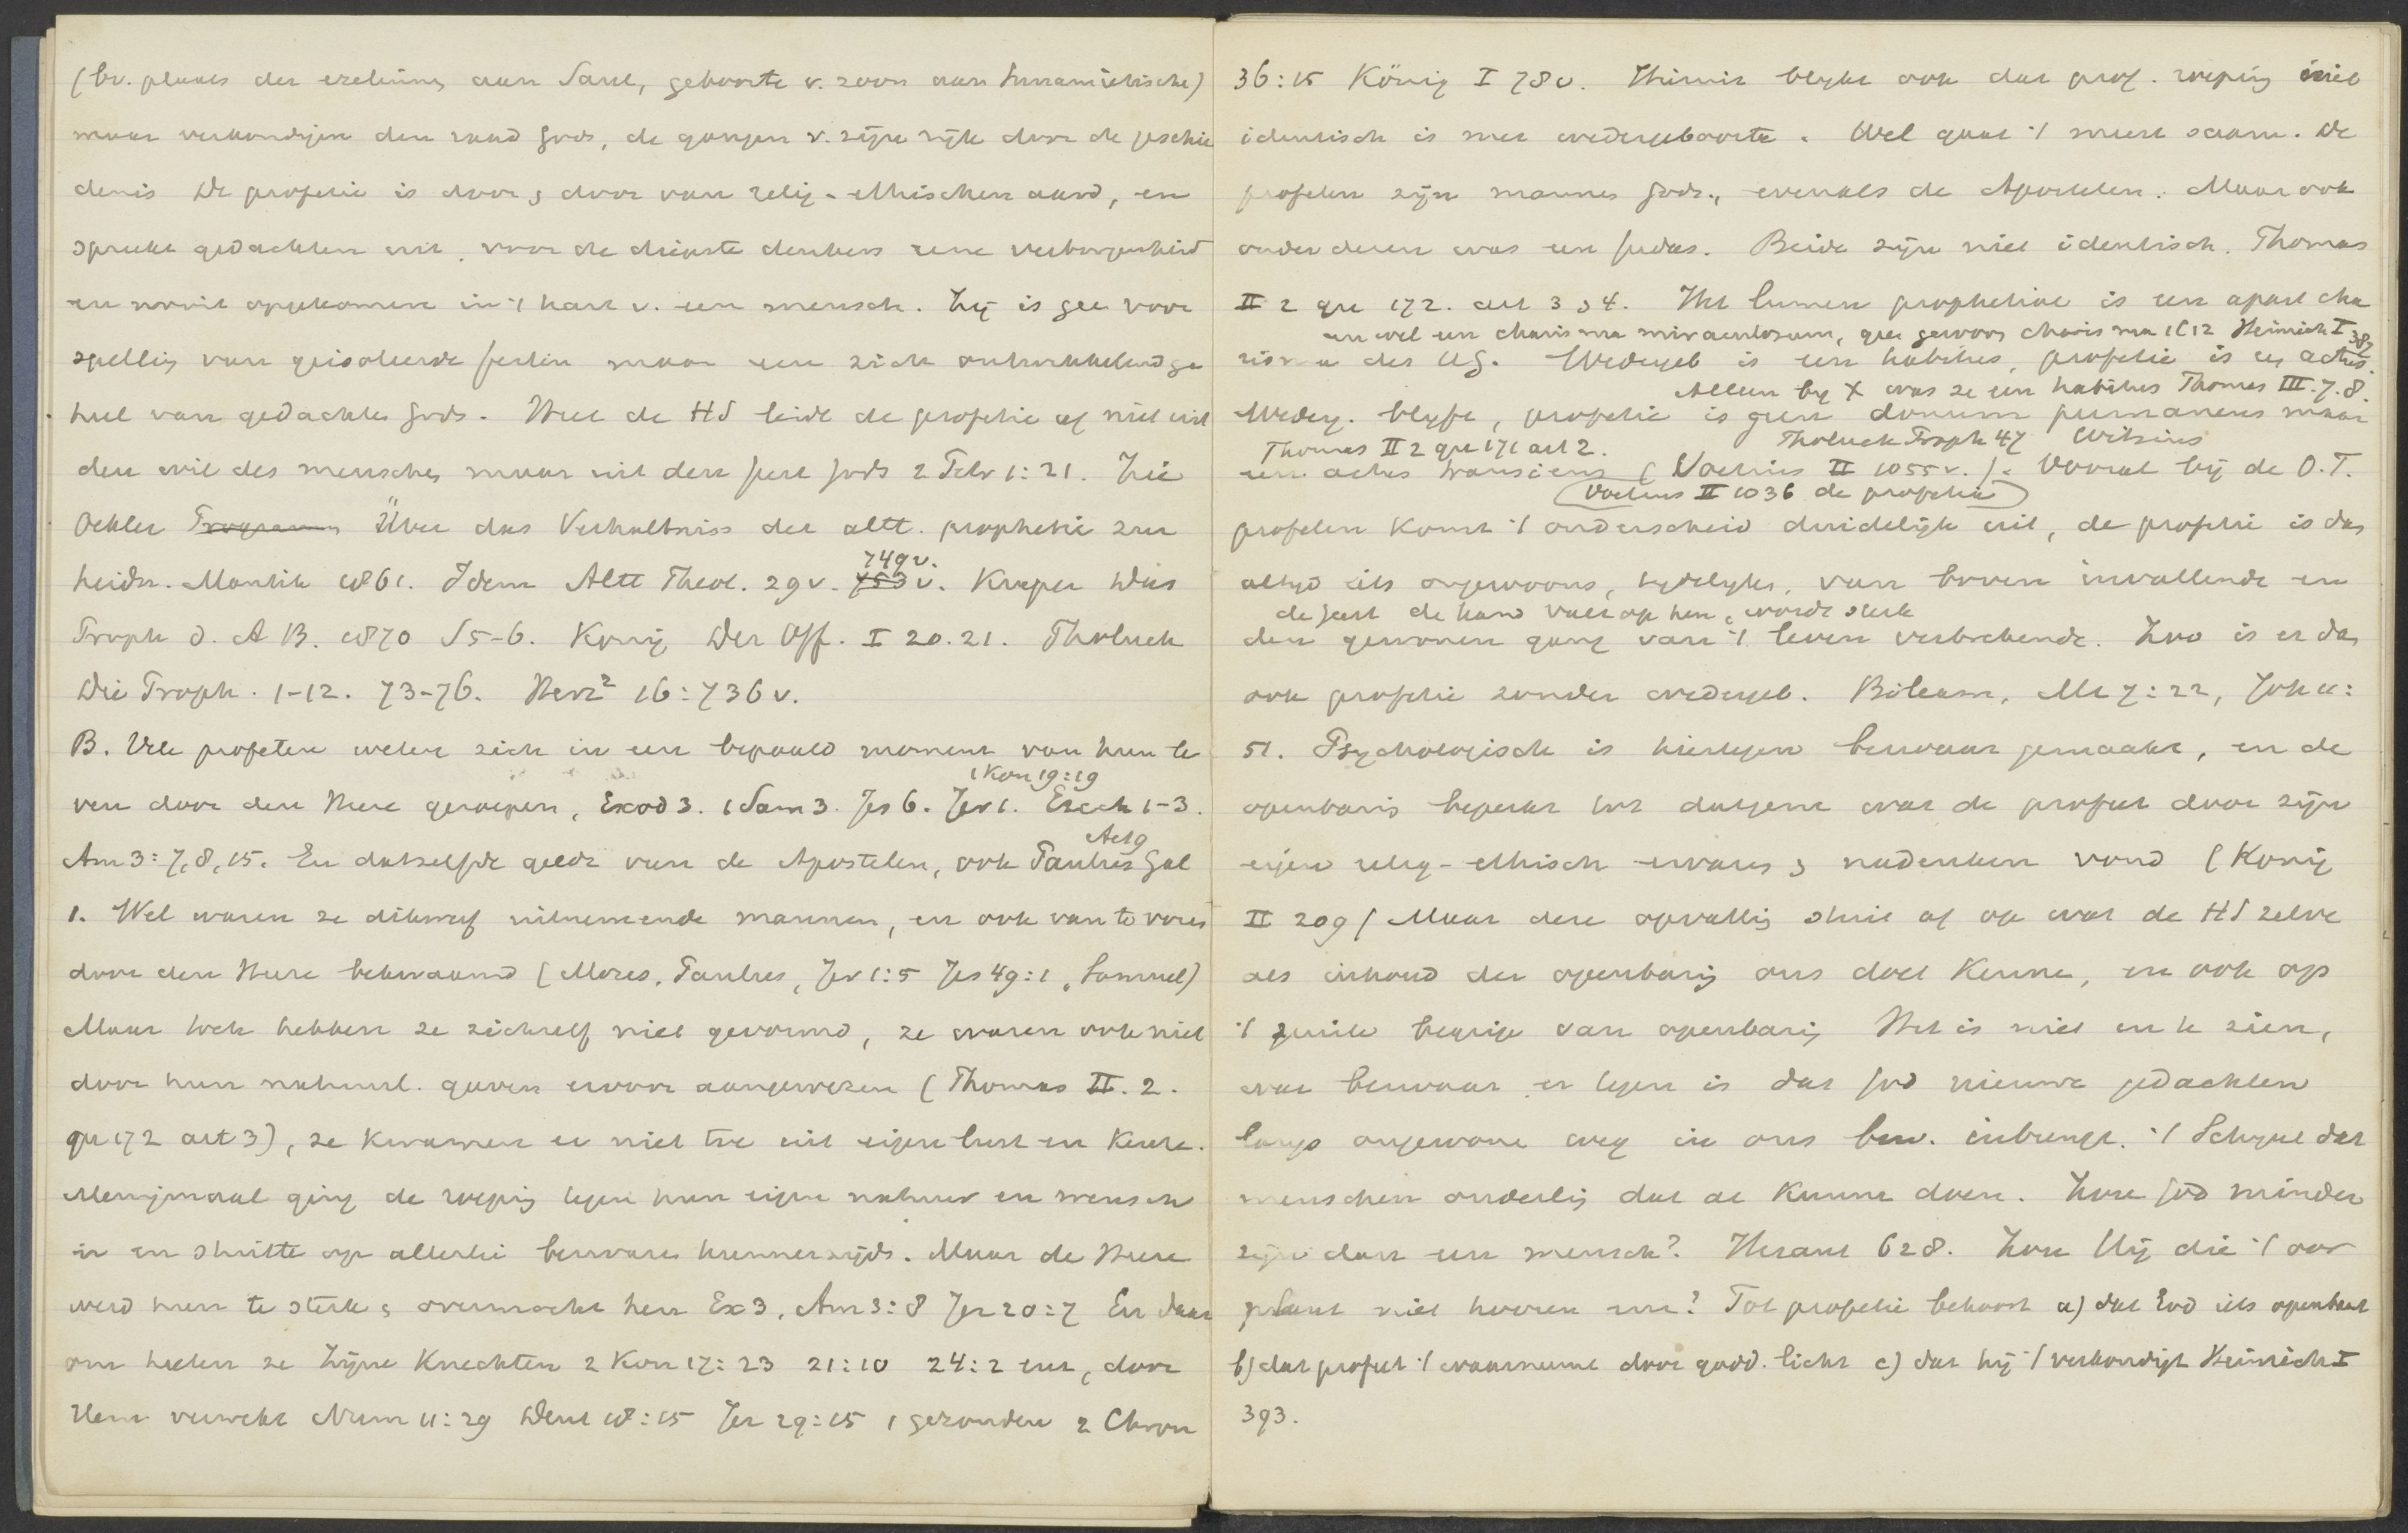 (bv. plaats der ezelinne aan Saul, geboorte v. zoon aan Sunamietische)
maar verkondigen den raad Gods, de gangen v. zijn rijk door de geschie
denis De profetie is door & door van relig-ethischen aard, en
spreekt gedachten uit, voor de diepste denkers eene verborgenheid
en nooit opgekomen in 't hart v. een mensch. Zij is gee voor
spelling van geisoleerde feiten maar een zich ontwikkelend ge
heel van gedachte Gods. Heel de HS leidt de profetie af niet uit
den wil des menschen maar uit den Geest Gods 2 Petr 1:21. Zie
Oehler Über das Verhaltniss der altt. prophetie zur
749v.
heidn. Mantik 1861. Idem Altt Theol. 29v. 753v. Kueper Das
Proph d. A B. 1870 S 5-6. König Der Off. I 20.21. Tholuck
Die Proph. 1-12. 73-76. Herz² 16:736v.
B. Vele profeten weten zich in een bepaald moment van hun le
1 Kon 19:19
ven door den Heere geroepen, Exod 3. 1 Sam 3. Jes 6. Jer 1. Ezech 1-3.
Act 9
Am 3:7,8,15. En datzelfde geldt van de Apostelen, ook Paulus Gal
1. Wel waren ze dikwerf uitnemende mannen, en ook van te voren
door den Heere bekwaamd (Mozes, Paulus, Jer 1:5 Jes 49:1, Samuel)
Maar toch hebben ze zichzelf niet gevormd, ze waren ook niet
door hun natuurl. gaven ervoor aangewezen (Thomas II. 2.
qu 172 art 3), ze kwamen er niet toe uit eigen lust en keuze.
Menigmaal ging de roeping tegen hun eigen natuur en wensch
in en stuitte op allerlei bezwaren hunnerzijds. Maar de Heere
werd hun te sterk & overmocht hen Ex 3, Am 3:8 Jer 20:7 En daar
om heeten ze Zijne Knechten 2 Kon 17:23 21:10 24:2 enz, door
Hem verwekt Num 11:29 Deut 18:15 Jer 29:15, gezonden 2 Chron
36:15 König I 78v. Hieruit blijkt ook dat prof. roeping niet
identisch is met wedergeboorte. Wel gaat 't meest saam. De
profeten zijn mannen Gods, evenals de Apostelen. Maar ook
onder dezen was een Judas. Beide zijn niet identisch. Thomas
II 2 qu 172. art 3 & 4. Het lumen prophetiae is een apart cha
en wel een charisma miraculosum, gee gewoon charisma 1C12 Heinrich I 382
risma des HG. Wedergeb is een habitus, profetie is een actus.
Alleen bij X was ze een habitus Thomas III. 7. 8.
Wederg. blijft, profetie is geen donum permanens maar
Thomas II 2 qu 171 art 2. Tholuck Proph 47 Witsius
een actus transiens (Voetius II 1055v.). Vooral bij de O.T.
Voetius II 1036 de prophetia
profeten komt 't onderscheid duidelijk uit, de profetie is dan
altijd iets ongewoons, tijdelijks, van boven invallende en
de Geest de hand valt op hen, wordt sterk
den gewonen gang van 't leven verbrekende. Zoo is er dan
ook profetie zonder wedergeb. Bileam, Mt 7:22, Joh 11:
51. Psychologisch is hiertegen bezwaar gemaakt, en de
openbaring beperkt tot datgene wat de profeet door zijn
eigen relig-ethisch ervaren & nadenken vond (König
II 209) Maar deze opvatting stuit af op wat de HS zelve
als inhoud der openbaring ons doet kenne, en ook op
't juiste begrip van openbaring Het is niet in te zien,
wat bezwaar er tegen is dat God nieuwe gedachten
langs ongewone weg in ons bew. inbrengt. 't Schijnt dat
menschen onderling dat al kunne doen. Zou God minder
zijn dan een mensch? Heraut 628. Zou Hij die 't oor
plant niet hooren enz? Tot profetie behoort a) dat God iets openbaart
b) dat profeet 't waarneemt door godd. licht c) dat hij 't verkondigt Heinrich I
393.